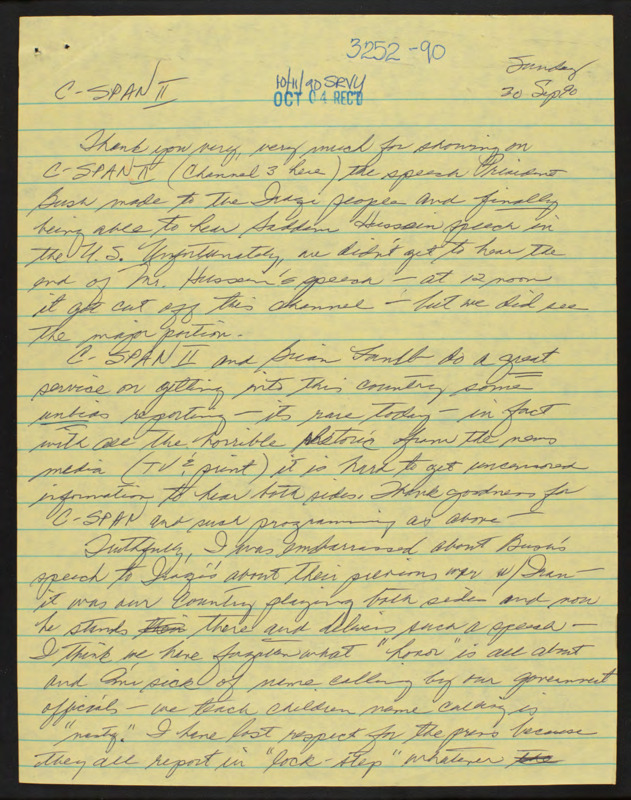 3252-90
Sunday
C-SPAN II
10/11/90 SRVY
OCT 04 REC'D
30 Sep 90
Thank you very, very much for showing on
C-SPAN II (Channel 3 here) the speech President
Bush made to the Iraqi people and finally
being able to hear Saddem Hussein speech in
the U.S. Unfortunately, we didn't get to hear the
end of Mr. Hussein's speech - at 12 noon
it got cut off this channel - but we did see
the major portion.
C-SPAN II and Brian Lamb do a great
service on getting into this country some
unbias reporting - its rare today - in fact
with all the horrible rhetoric from the news
media (TV & print) it is hard to get uncensored
information, to hear both sides. Thank goodness for
C-SPAN and such programming as above -
Truthfully, I was embarrassed about Bush's
speech to Iraqi's about their previous war w/Iran -
it was our Country playing both sides and now
he stands there and delivers such a speech -
I think we have forgotten what "honor" is all about
and I'm sick of name calling by our government
officials - we teach children name calling is
"nasty." I have lost respect for the press because
they all report in "lock-step" whatever the